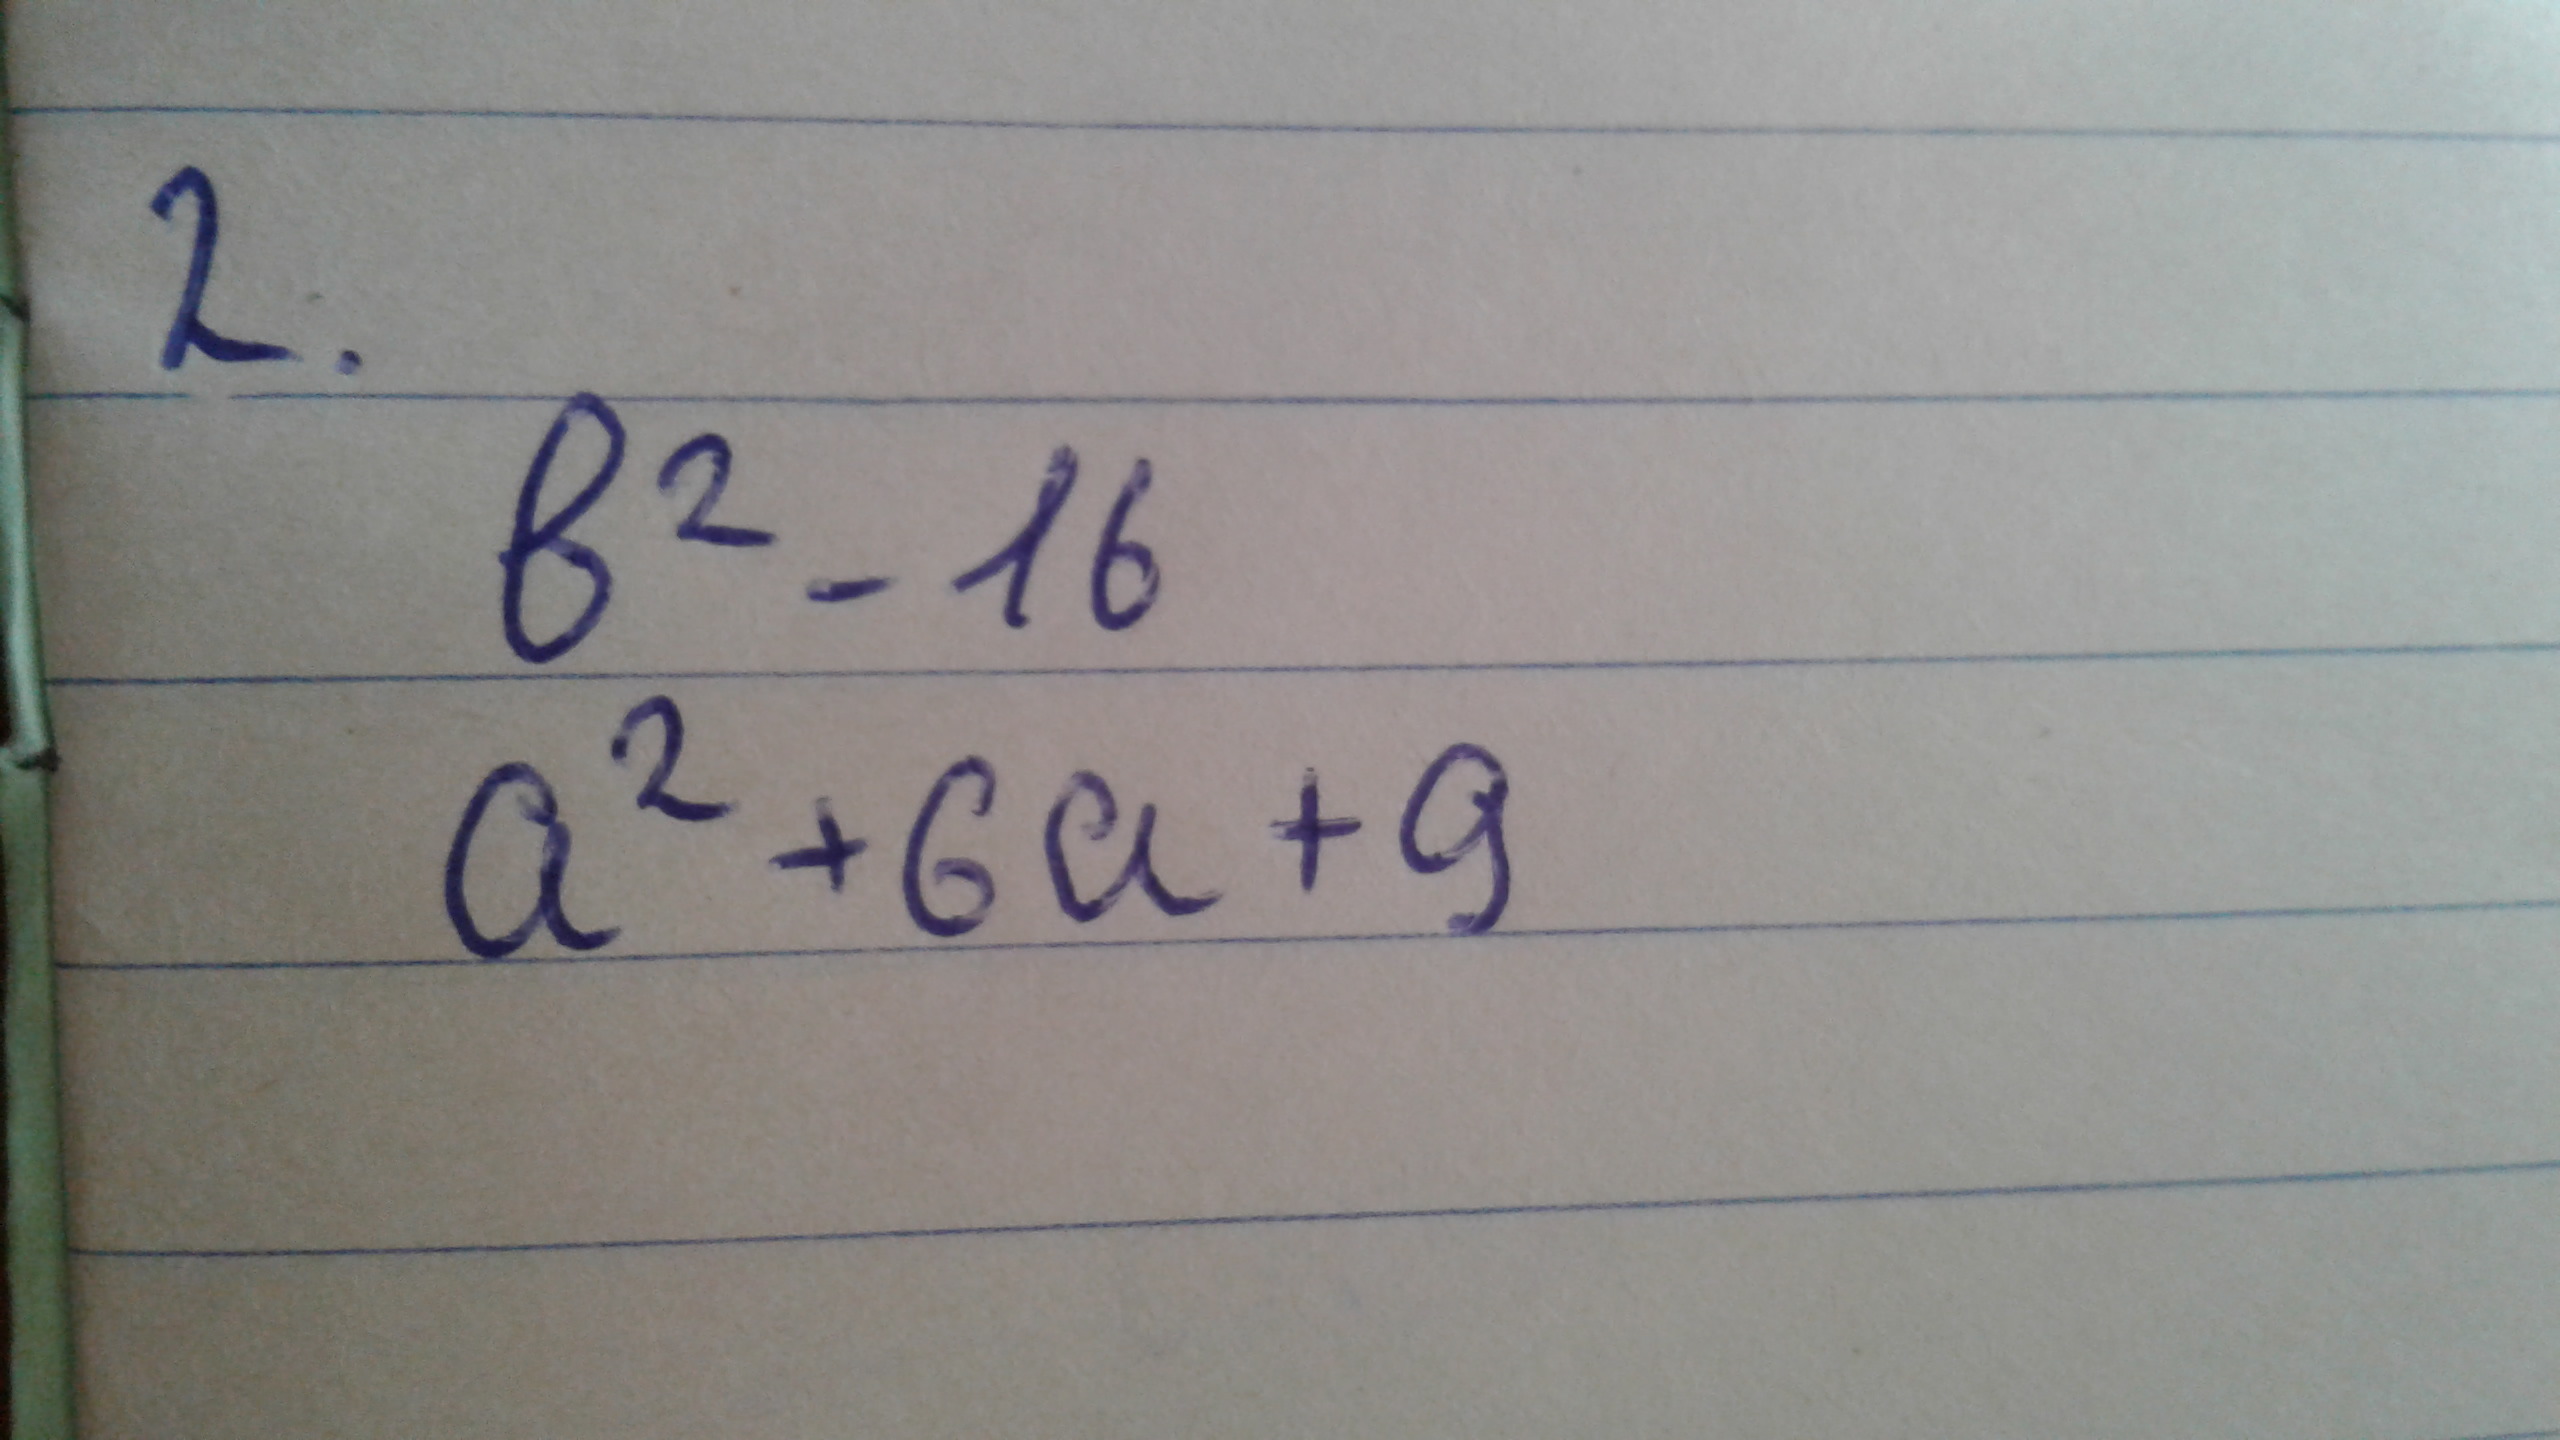 2.
b² - 16
a² + 6a + 9